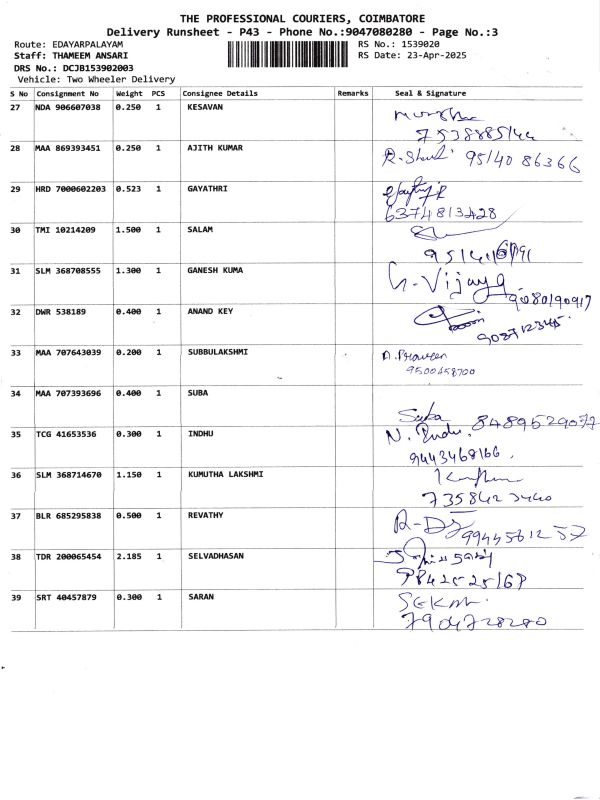 THE PROFESSIONAL COURIERS, COIMBATORE
Delivery Runsheet - P43 - Phone No.:9047080280 - Page No.:3
Route: EDAYARPALAYAM RS No.: 1539020
Staff: THAMEEM ANSARI RS Date: 23-Apr-2025
DRS No.: DCJB153902003
Vehicle: Two Wheeler Delivery
S No Consignment No Weight PCS Consignee Details Remarks Seal & Signature
27 NDA 906607038 0.250 1 KESAVAN
28 MAA 869393451 0.250 1 AJITH KUMAR
95140 86366
29 HRD 7000602203 0.523 1 GAYATHRI
6374813428
30 TMI 10214209 1.500 1 SALAM
31 SLM 368708555 1.300 1 GANESH KUMA
G. Vijaya
9080190917
32 DWR 538189 0.400 1 ANAND KEY
908712345
33 MAA 707643039 0.200 1 SUBBULAKSHMI
A. Praveen
9500458700
34 MAA 707393696 0.400 1 SUBA
Suba 8489529077
35 TCG 41653536 0.300 1 INDHU
N. Indu.
9443468166.
36 SLM 368714670 1.150 1 KUMUTHA LAKSHMI
37 BLR 685295838 0.500 1 REVATHY
9944561257
38 TDR 200065454 2.185 1 SELVADHASAN
39 SRT 40457879 0.300 1 SARAN
7904728280